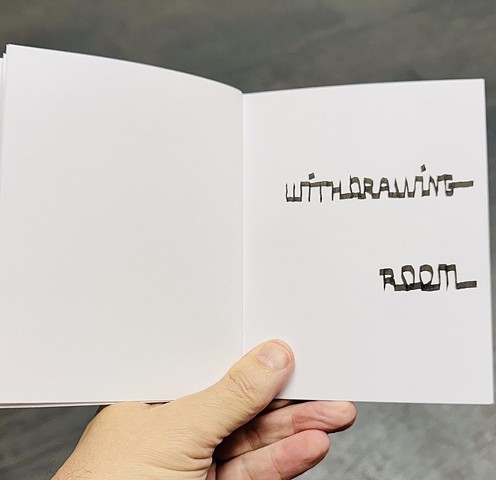 WiTHDRAWiNG
ROOM